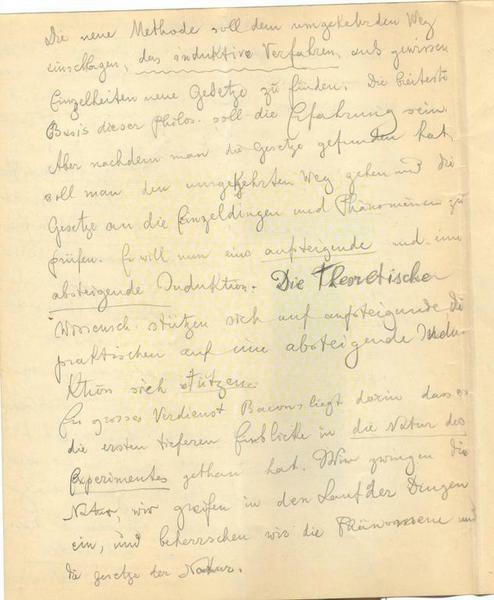 Die neue Methode soll dem umgekehrden Weg
einschlagen, das induktive Verfahren, aus gewissen
Einzelheiten neue Gesetze zu finden. Die breiteste
Basis dieser Philos. soll die Erfahrung sein.
Aber nachdem man die Gesetze gefunden hat,
soll man den umgekehrten Weg gehen und die
Gesetze an die Einzeldingen und Phänomenen zu
prüfen. Er will nun eine aufsteigende und eine
absteigende Induktion. Die Theoretischen
Wissensch. stützen sich auf aufsteigende die
praktischen auf eine absteigende Induk-
ktion sich stützen.
Ein grosses Verdienst Bacons liegt darin dass er
die ersten tieferen Einblicke in die Natur des
Experimentes gethan hat. Wir zwingen die
Natur, wir greifen in den Lauf der Dingen
ein, und beherrschen wir die Phänomene und
die gesetze der Natur.